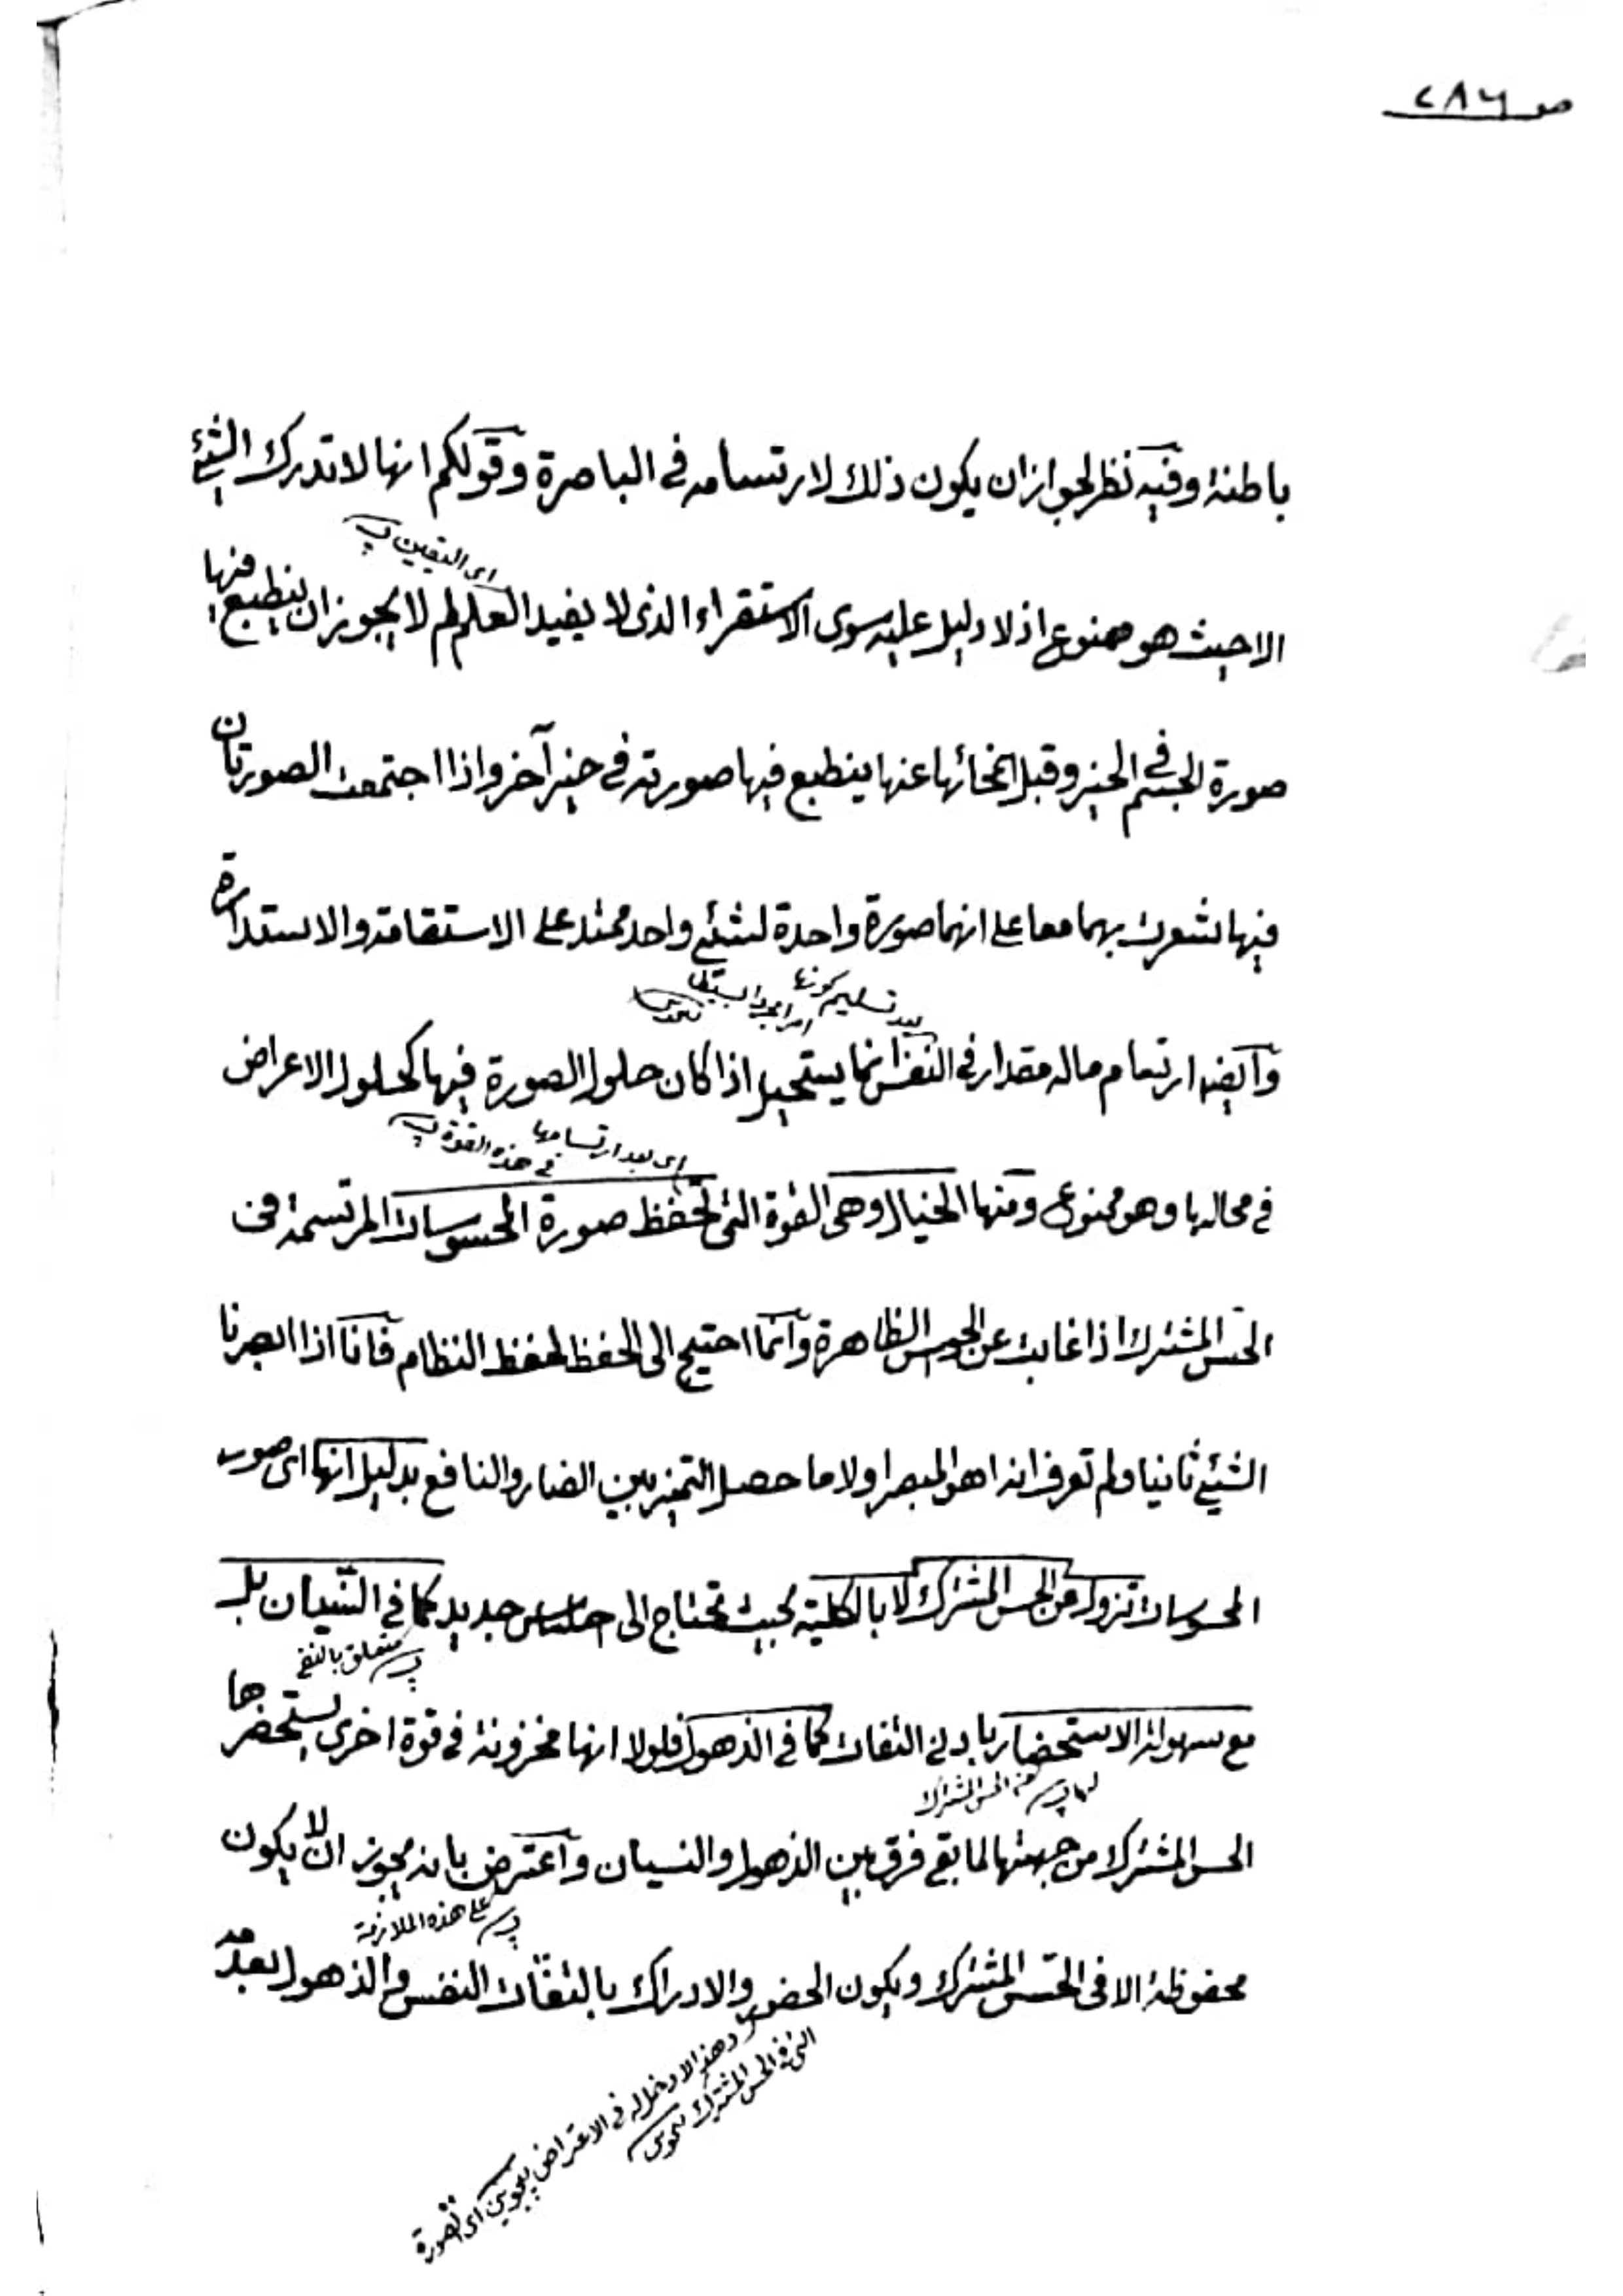 ص ٢٨٦
باطنة وفيه نظر لجواز ان يكون ذلك لارتسامه في الباصرة وقولكم انها لا تدرك الشيئ
اى اليقين
الا حيث هو ممنوع اذ لا دليل عليه سوى الاستقراء الذى لا يفيد العلم لم لا يجوز ان ينطبع فيها
صورة الجسم في الحيز وقبل انمحائها عنها ينطبع فيها صورته في حيز آخر واذا اجتمعت الصورتان
فيها تشعرك بهما معا على انهما صورة واحدة لشيئ واحد ممتد على الاستقامة والاستدارة
بعد تسليم كونها
وايضا ارتسام ماله مقدار في النفس انما يستحيل اذا كان حلول الصورة فيها كحلول الاعراض
اى بعد ارتسامها
في هذه القوة
في محالها وهو ممنوع ومنها الخيال وهى القوة التى تحفظ صورة المحسوسات المرتسمة فى
الحس المشترك اذا غابت عن الحواس الظاهرة وانما احتيج الى الحفظ لحفظ النظام فانا اذا ابصرنا
الشيئ ثانيا ولم نعرف انه اهو المبصر اولا ما حصل التميز بين الضار والنافع بدليل انها اى صور
المحسوسات تزول عن الحس المشترك لا بالكلية بحيث تحتاج الى احساس جديد كما في النسيان بل
متعلق بالنفى
مع سهولة الاستحضار بادنى التفات كما في الذهول فلولا انها مخزونة في قوة اخرى يستحضرها
من الحس المشترك
الحس المشترك من جهتها لما بقي فرق بين الذهول والنسيان واعترض بانه يجوز ان لا يكون
على هذه الملازمة
محفوظة الا في الحس المشترك ويكون الحضور والادراك بالتفات النفس والذهول بعدمه
وهذا لا دخل له في الاعتراض اى الصورة
التى في الحس المشترك